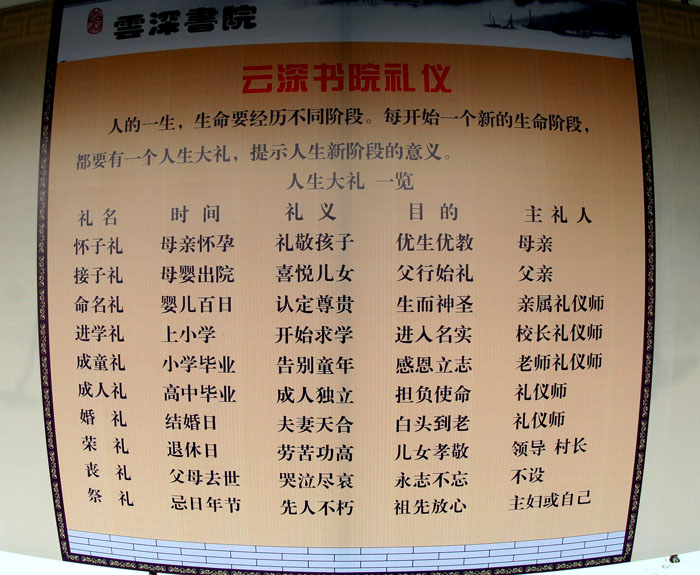 雲深書院
云深书院礼仪
人的一生，生命要经历不同阶段。每开始一个新的生命阶段，
都要有一个人生大礼，提示人生新阶段的意义。
人生大礼 一览
礼名 时间 礼义 目的 主礼人
怀子礼 母亲怀孕 礼敬孩子 优生优教 母亲
接子礼 母婴出院 喜悦儿女 父行始礼 父亲
命名礼 婴儿百日 认定尊贵 生而神圣 亲属礼仪师
进学礼 上小学 开始求学 进入名实 校长礼仪师
成童礼 小学毕业 告别童年 感恩立志 老师礼仪师
成人礼 高中毕业 成人独立 担负使命 礼仪师
婚礼 结婚日 夫妻天合 白头到老 礼仪师
荣礼 退休日 劳苦功高 儿女孝敬 领导 村长
丧礼 父母去世 哭泣尽哀 永志不忘 不设
祭礼 忌日年节 先人不朽 祖先放心 主妇或自己